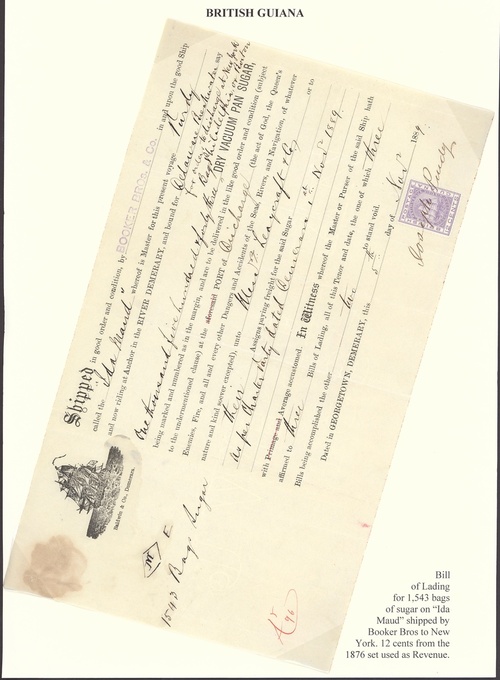 BRITISH GUIANA
Shipped in good order and condition, by BOOKER BROS. & CO. in and upon the good Ship
called the "Ida Maud" whereof is Master for this present voyage
and now riding at Anchor in the RIVER DEMERARY, and bound for Delaware Breakwater
for orders to discharge at New York
One thousand five hundred & forty three Bags DRY VACUUM PAN SUGAR,
being marked and numbered as in the margin, and are to be delivered in the like good order and condition (subject
to the undermentioned clause) at the aforesaid PORT of Discharge (the act of God, the Queen's
Enemies, Fire, and all and every other Dangers and Accidents of the Seas, Rivers, and Navigation, of whatever
nature and kind soever excepted), unto or to
their Assigns paying freight for the said Sugar
as per Charter Party dated Demerara Nov 1st 1889.
with Primage and Average accustomed. In Witness whereof the Master or Purser of the said Ship hath
affirmed to three Bills of Lading, all of this Tenor and date, the one of which three
Bills being accomplished the other two to stand void.
Dated in GEORGETOWN, DEMERARY, this 5th day of Novr 1889.
Baldwin & Co., Demerara.
1543 Bags Sugar
Bill
of Lading
for 1,543 bags
of sugar on "Ida
Maud" shipped by
Booker Bros to New
York. 12 cents from the
1876 set used as Revenue.